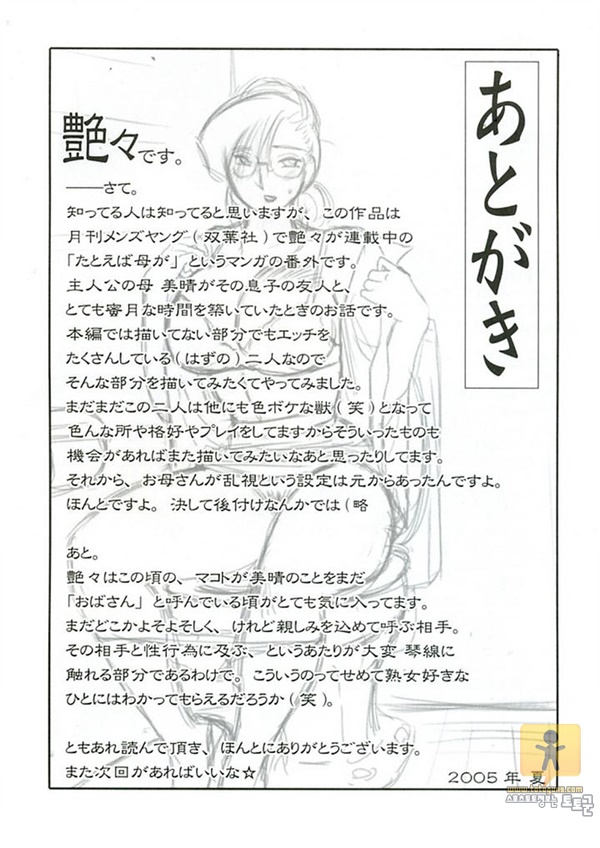 あとがき
艶々です。
――さて。
知ってる人は知ってると思いますが、この作品は
月刊メンズヤング(双葉社)で艶々が連載中の
「たとえば母が」というマンガの番外です。
主人公の母 美晴がその息子の友人と、
とても審月な時間を築いていたときのお話です。
本編では描いてない部分でもエッチを
たくさんしている(はずの)二人なので
そんな部分を描いてみたくてやってみました。
まだまだこの二人は他にも色ボケな獣(笑)となって
色んな所や格好やプレイをしてますからそういったものも
機会があればまた描いてみたいなあと思ったりしてます。
それから、お母さんが乱視という設定は元からあったんですよ。
ほんとですよ。決して後付けなんかでは(略
あと。
艶々はこの頃の、マコトが美晴のことをまだ
「おばさん」と呼んでいる頃がとても気に入ってます。
まだどこかよそよそしく、けれど親しみを込めて呼ぶ相手。
その相手と性行為に及ぶ、というあたりが大変 琴線に
触れる部分であるわけで。こういうのってせめて熟女好きな
ひとにはわかってもらえるだろうか(笑)。
ともあれ読んで頂き、ほんとにありがとうございます。
また次回があればいいな☆
2005年 夏